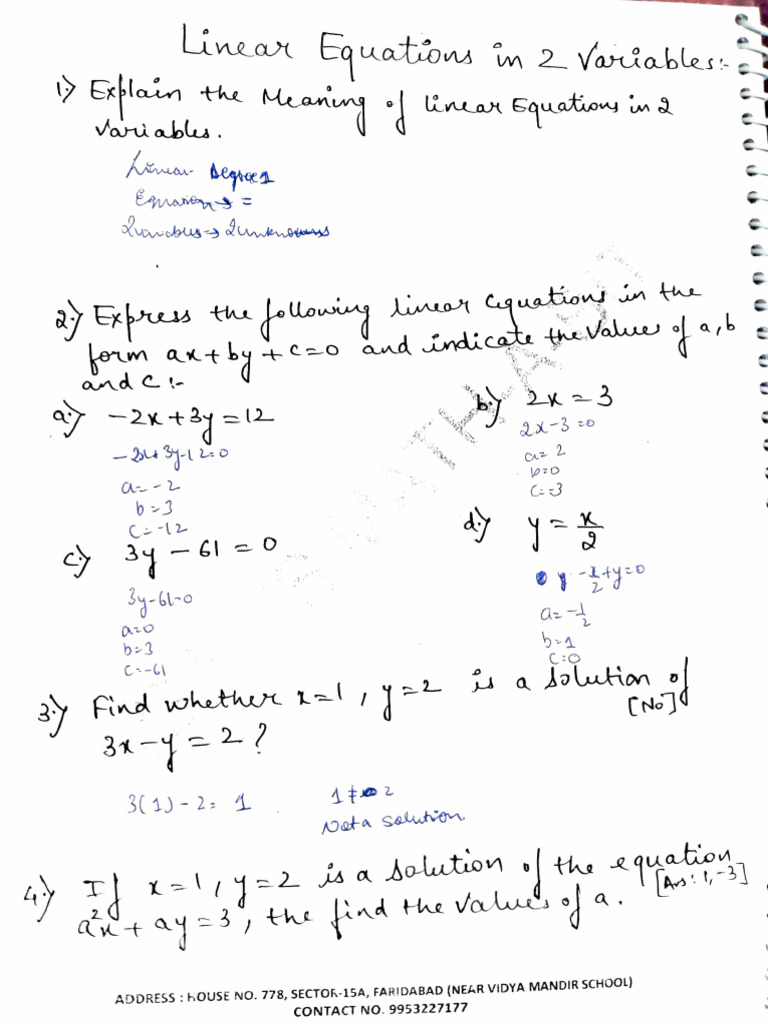 Linear Equations in 2 Variables:-
1.) Explain the Meaning of linear Equations in 2
variables.
Linear Degree 1
Equation → =
2 variables → 2 unknowns
2.) Express the following linear equations in the
form ax + by + c = 0 and indicate the values of a, b
and c :-
a.) -2x + 3y = 12
-2x + 3y - 12 = 0
a = -2
b = 3
c = -12
b.) 2x = 3
2x - 3 = 0
a = 2
b = 0
c = -3
c.) 3y - 61 = 0
3y - 61 = 0
a = 0
b = 3
c = -61
d.) y = x/2
-x/2 + y = 0
a = -1/2
b = 1
c = 0
3.) Find whether x = 1, y = 2 is a solution of
3x - y = 2 ? [No]
3(1) - 2 = 1 1 ≠ 2
Not a solution
4.) If x = 1, y = 2 is a solution of the equation
a²x + ay = 3, the find the values of a. [Ans: 1, -3]
ADDRESS : HOUSE NO. 778, SECTOR-15A, FARIDABAD (NEAR VIDYA MANDIR SCHOOL)
CONTACT NO. 9953227177